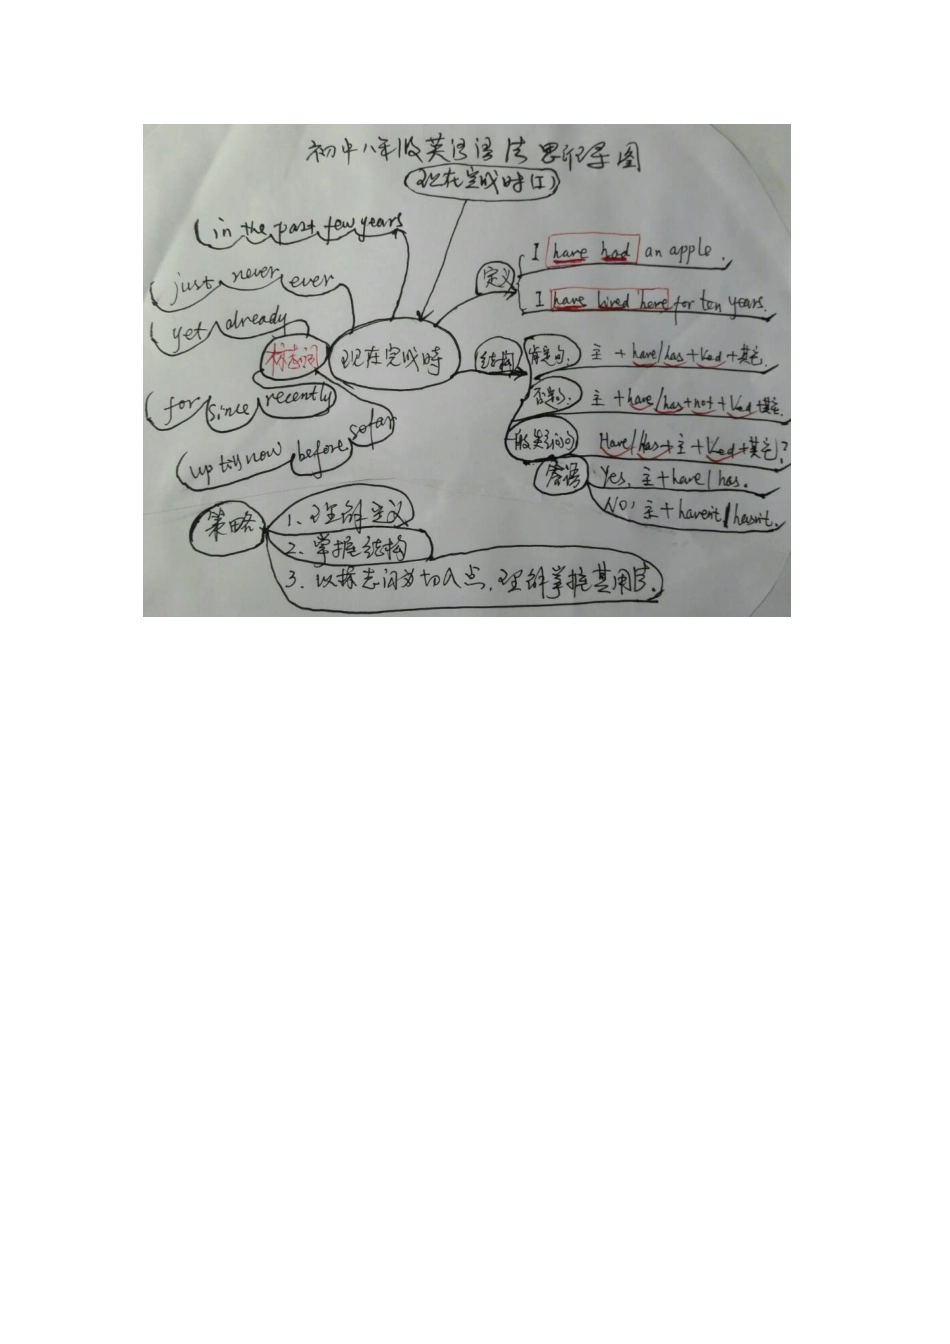 初中八年级英语语法思维导图
(现在完成时(I))
in the past few years
just never ever
yet already
标志词
for since recently
up till now before so far
现在完成时
定义
I have had an apple.
I have lived here for ten years.
结构
肯定句. 主 + have/has + Ved + 其它.
否定句. 主 + have/has + not + Ved + 其它.
一般疑问句 Have/Has + 主 + Ved + 其它?
答语
Yes, 主 + have/has.
No, 主 + haven't/hasn't.
策略
1、理解定义
2、掌握结构
3、以标志词为切入点,理解掌握其用法.